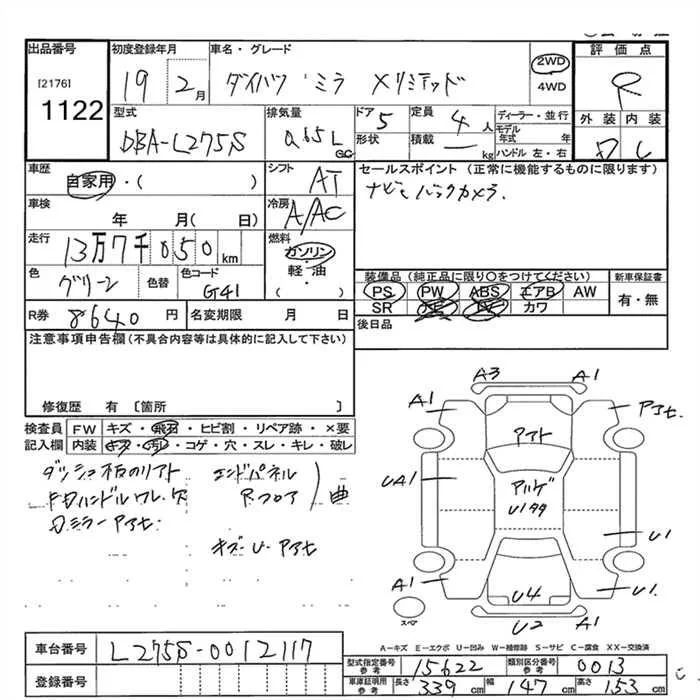 出品番号
[2176]
1122
初度登録年月
19年 2月
車名・グレード
ダイハツ ミラ メリミテッド
2WD
4WD
評価点
R
外装 内装
D C
型式
DBA-L275S
排気量
0.65L
ドア 5
形状
定員 4人
積載 ー kg
ディーラー・並行
モデル年式 年
ハンドル 左・右
車歴
自家用・( )
シフト
AT
セールスポイント (正常に機能するものに限ります)
ナビ バックカメラ.
車検
年 月( 日)
冷房
A/AC
走行
13万7千050km
燃料
ガソリン・
軽・油
( )
色
グリーン
色替
色コード
G41
装備品(純正品に限り○をつけてください)
PS PW ABS エアB AW
SR カワ
新車保証書
有・無
R券 8640円
名変期限 月 日
後日品
注意事項申告欄(不具合内容等は具体的に記入して下さい)
修復歴 有 [箇所 ]
検査員記入欄
FW キズ・飛石・ヒビ割・リペア跡・×要
内装 キズ・汚レ・コゲ・穴・スレ・キレ・破レ
エンドパネル
Rフロア
曲
Dミラー アアセ.
キズ・U・アアセ
A3 A1
A1 アアセ
アアト
UA1
U1
A1
U4
U1
U2 A1
スペア
A-キズ E-エクボ U-凹み W-補修跡 S-サビ C-腐食 XX-交換済
車台番号
L275S-0012117
登録番号
型式指定番号 参考
15622
類別区分番号 参考
0013
車庫証明用 参考
長さ 339cm
幅 147cm
高さ 153cm